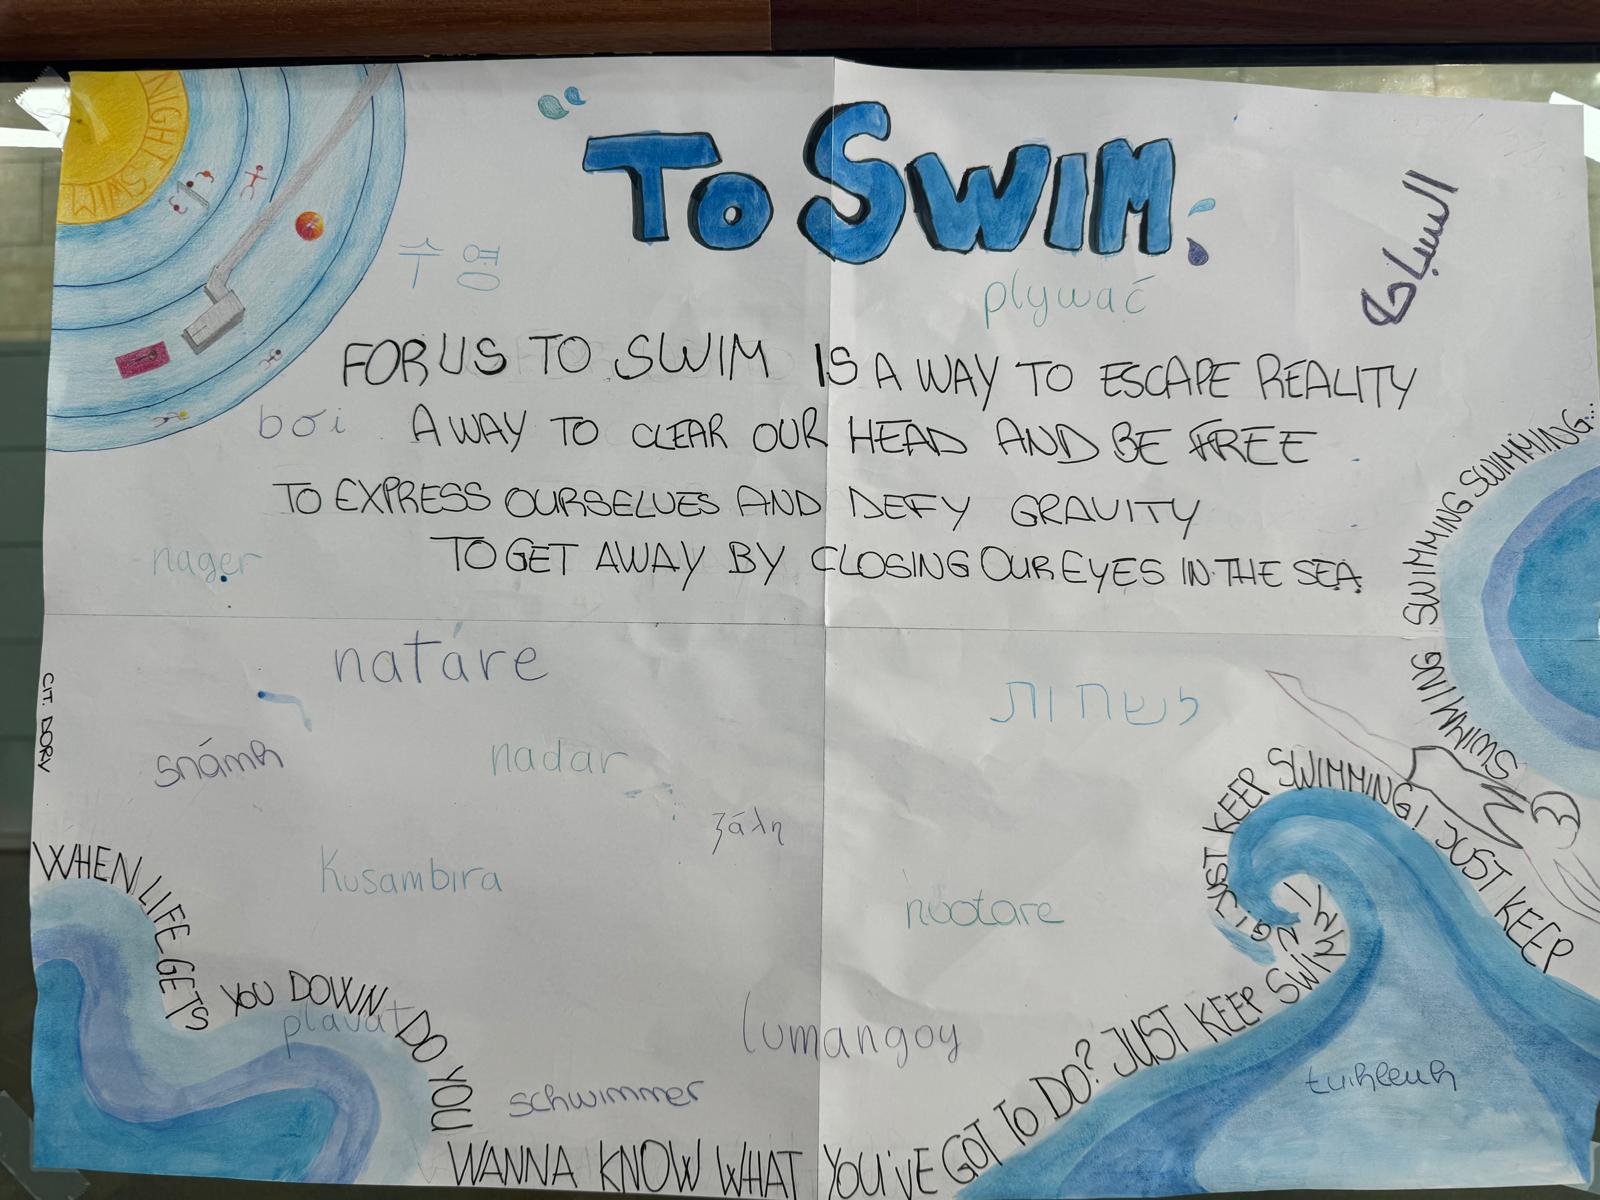 NIGHT SWIM
TO SWIM
السباحة
수영
plywać
FOR US TO SWIM IS A WAY TO ESCAPE REALITY
bơi
A WAY TO CLEAR OUR HEAD AND BE FREE
TO EXPRESS OURSELVES AND DEFY GRAVITY
nager
TO GET AWAY BY CLOSING OUR EYES IN THE SEA
SWIMMING SWIMMING SWIMMING...
natáre
לשחות
CIT. DORY
snámh
nadar
ζάλη
Kusambira
nuotare
plavat
lumangoy
schwimmer
WHEN LIFE GETS YOU DOWN DO YOU
WANNA KNOW WHAT YOU'VE GOT TO DO? JUST KEEP SWIMMING! JUST KEEP SWIMMING! JUST KEEP